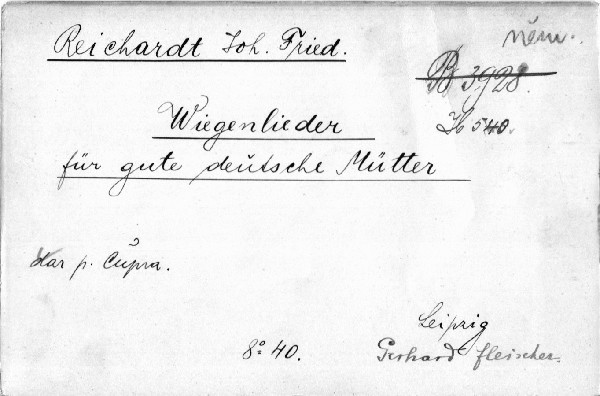 Reichardt Joh. Fried.
něm.
B 3928.
H 540.
Wiegenlieder
für gute deutsche Mütter
dar p. Čupra.
Leipzig
8° 40.
Gerhard Fleischer.